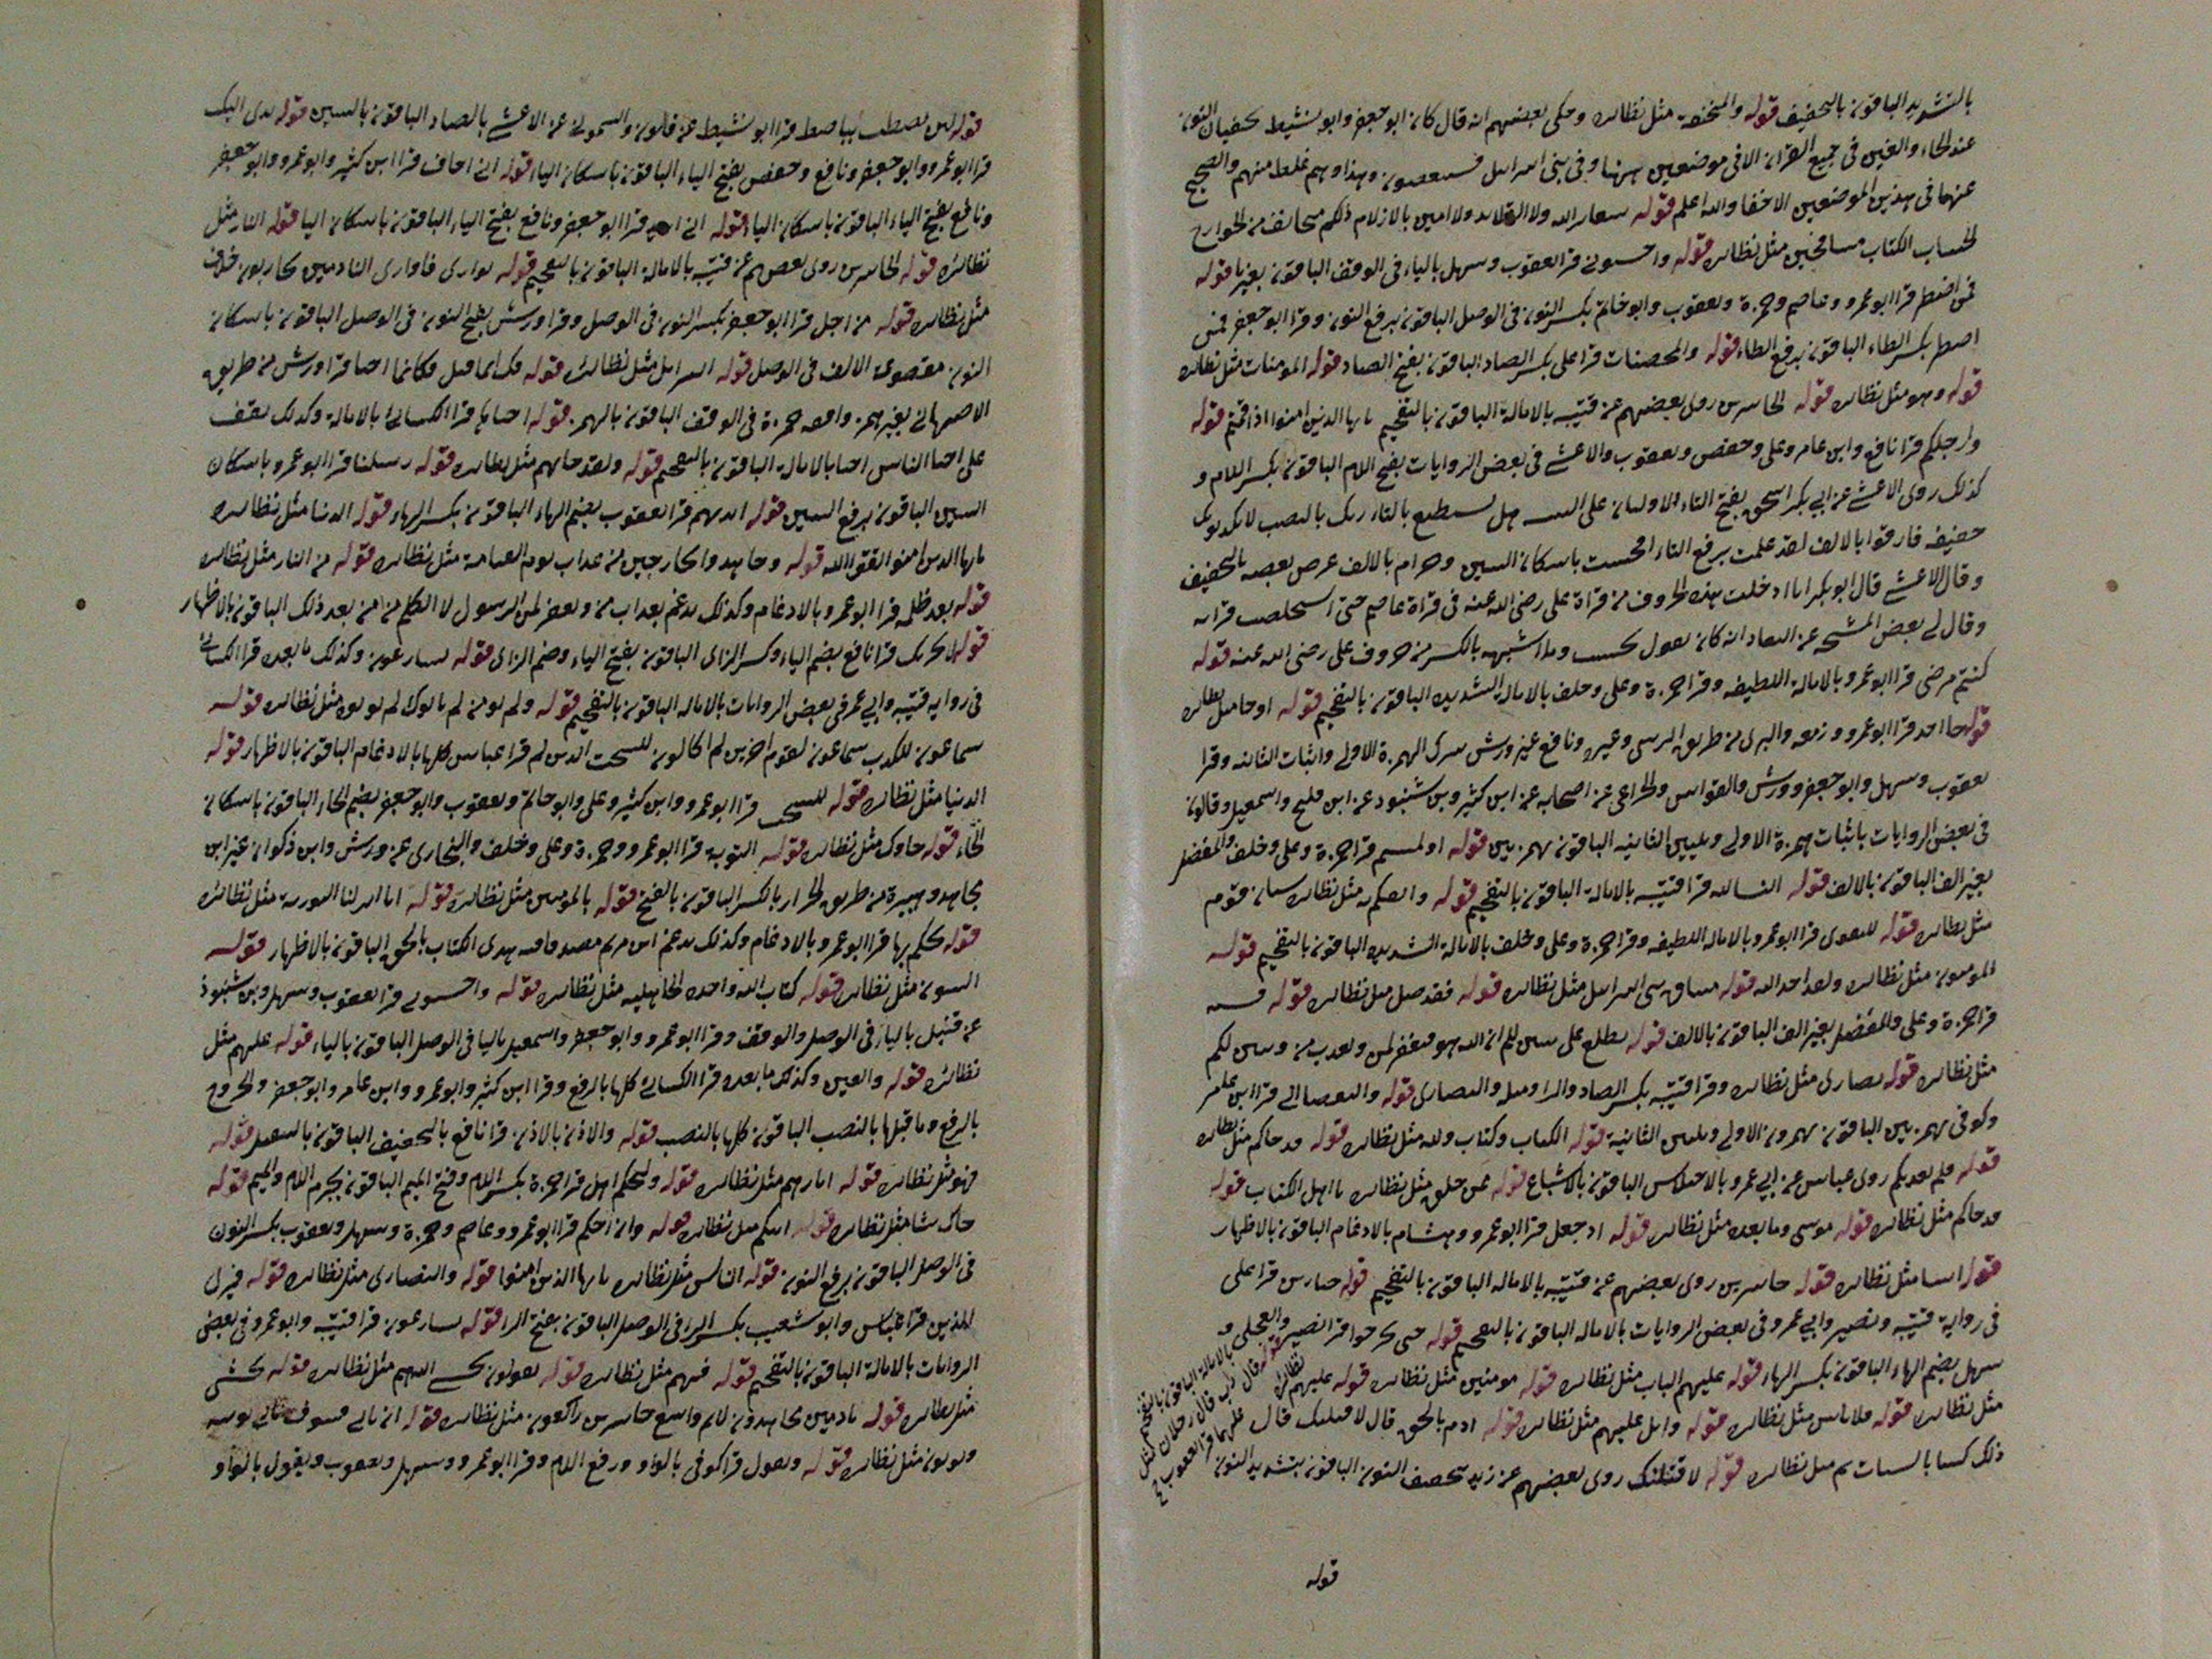 بالتشديد الباقون بالتخفيف قوله والمنخنقة مثل نظائره وحكى بعضهم انه قال كان ابو جعفر وابو نشيط يخفيان النون
عند الخاء والغين فى جميع القران الا فى موضعين ههنا وفى بنى اسرائيل فسينغضون وهذا وهم غلط منهم والصحيح
عنهما فى هذين الموضعين الاخفا والله اعلم قوله شعائر الله ولا القلائد ولا امين بالازلام ذلكم الجوارح
الحساب الكتاب مسافحين مثل نظائره قوله واخشونى قرا يعقوب وسهل بالياء فى الوقف الباقون بغيريا قوله
فمن اضطر قرا ابو عمرو وعاصم وحمزة ويعقوب وابو حاتم بكسر النون فى الوصل الباقون برفع النون وقرا ابو جعفر فمن
اضطر بكسر الطاء الباقون برفع الطاء قوله والمحصنات قرا على بكسر الصاد الباقون بفتح الصاد قوله المومنات مثل نظائره
قوله وهو مثل نظائره قوله الخاسرين روى بعضهم عن قتيبه بالامالة الباقون بالتفخيم يايها الذين امنوا اذا قمتم قوله
وارجلكم قرا نافع وابن عامر وعلى وحفص ويعقوب والاعشى فى بعض الروايات بفتح اللام الباقون بكسر اللام و
كذلك روى الاعشى عن ابى بكر استحق بفتح التاء الاوليان على هل تستطيع بالتاء ربك بالنصب لا يكذبونك
خفيفه فارقوا بالالف لقد علمت برفع التاء افحسب باسكان السين وحرام بالالف عرف بعضه بالتخفيف
وقال الاعشى قال ابو بكر انا ادخلت هذه الحروف من قراة على رضى الله عنه فى قراة عاصم حتى استخلصت قرائه
وقال لى بعض المشيخه عن انه كان يقول يحسب وما اشبهه بالكسر من حروف على رضى الله عنه قوله
كنتم مرضى قرا ابو عمرو بالامالة اللطيفه وقرا حمزة وعلى وخلف بالامالة الشديده الباقون بالتفخيم قوله او جا مثل نظائره
قوله جا احد قرا ابو عمرو وزمعه والبزى من طريق وغيره ونافع غير ورش بترك الهمزة الاولى واثبات الثانيه وقرا
يعقوب وسهل وابو جعفر وورش والقواس والخزاعى عن اصحابه عن ابن كثير وبن شنبوذ عن ابن فليح واسمعيل وقالون
فى بعض الروايات باثبات همزة الاولى وتليين الثانيه الباقون بهمزتين قوله او لمستم قرا حمزة وعلى وخلف والمفضل
بغير الف الباقون بالالف قوله النسا قرا قتيبه بالامالة الباقون بالتفخيم قوله واثقكم به مثل نظائره شنان قوم
مثل نظائره قوله للتقوى قرا ابو عمرو بالاماله اللطيفه وقرا حمزة وعلى وخلف بالامالة الشديده الباقون بالتفخيم قوله
المومنون مثل نظائره ولقد اخذ الله قوله ميثاق بنى اسرائيل مثل نظائره قوله فقد ضل مثل نظائره قوله قسيه
قرا حمزة وعلى والمفضل بغير الف الباقون بالالف قوله تطلع على يبين لكم ان الله هو فيغفر لمن ويعذب من يبين لكم
مثل نظائره قوله نصارى مثل نظائره وقرا قتيبه بكسر الصاد والرا والنصارى قوله والبغضا الى قرا ابن عامر
وكوفى بهمزتين الباقون بهمزون الاولى وتليين الثانية قوله الكتاب وكتاب مثل نظائره قوله قد جاكم مثل نظائره
قوله فلم يعذبكم روى عباس عن ابى عمرو بالاختلاس الباقون بالاشباع قوله ممن خلق مثل نظائره يا اهل الكتاب قوله
قد جاكم مثل نظائره قوله موسى وما بعده مثل نظائره قوله اذ جعل قرا ابو عمرو وهشام بالادغام الباقون بالاظهار
قوله انبيا مثل نظائره قوله خاسرين روى بعضهم عن قتيبه بالاماله الباقون بالتفخيم قوله جبارين قرا على
فى رواية قتيبه ونصير وابى عمرو فى بعض الروايات بالاماله الباقون بالتفخيم قوله حتى يخرجوا قرا نصير والعجلى
سهل بضم الهاء الباقون بكسر الهاء قوله عليهم الباب مثل نظائره قوله مومنين مثل نظائره قوله عليهم
مثل نظائره قوله فلا تاس مثل نظائره قوله واتل عليهم مثل نظائره قوله ادم بالحق قال لاقتلنك قال
ذلك كتبنا بالبينات ثم مثل نظائره قوله لاقتلنك روى بعضهم عن زيد بتخفيف النون الباقون بتشديد النون
قوله
قوله لئن بسطت بباسط قرا ابو نشيط عن قالون والشمونى عن الاعشى بالصاد الباقون بالسين قوله يدى اليك
قرا ابو عمرو وابو جعفر ونافع وحفص بفتح الياء الباقون باسكان الياء قوله انى اخاف قرا ابن كثير وابو عمرو وابو جعفر
ونافع بفتح الياء الباقون باسكان الياء قوله انى اريد قرا ابو جعفر ونافع بفتح الياء الباقون باسكان اليا قوله النار مثل
نظائره قوله الخاسرين روى بعضهم عن قتيبه بالامالة الباقون بالتفخيم قوله يوارى فاوارى النادمين يحاربون خلاف
مثل نظائره قوله من اجل قرا ابو جعفر بكسر النون فى الوصل وقرا ورش بفتح النون فى الوصل الباقون باسكان
النون مقطوعة الالف فى الوصل قوله اسرائيل مثل نظائره قوله فكانما احيا قرا ورش من طريق
الاصبهانى بغير همز وافقه حمزة فى الوقف الباقون بالهمز قوله احياها قرا الكسائى بالامالة وكذلك يقف
على احيا الناس احيا بالامالة الباقون بالتفخيم قوله ولقد جاتهم مثل نظائره قوله رسلنا قرا ابو عمرو باسكان
السين الباقون برفع السين قوله ايديهم قرا يعقوب بضم الهاء الباقون بكسر الهاء قوله الدنيا مثل نظائره
يايها الذين امنوا اتقوا الله قوله وجاهدوا بخارجين من عذاب يوم القيامة مثل نظائره قوله من النار مثل نظائره
قوله بعد ظلمه قرا ابو عمرو بالادغام وكذلك يدغم يعذب من ويغفر لمن الرسول لا الكلم من من بعد ذلك الباقون بالاظهار
قوله لا يحزنك قرا نافع بضم الياء وكسر الزاى الباقون بفتح الياء وضم الزاى قوله يسارعون وكذلك ما بعده قرا الكسائى
فى رواية قتيبه وابى عمر فى بعض الروايات بالاماله الباقون بالتفخيم قوله ولم تومن لم ياتوك لم توتوه مثل نظائره قوله
سماعون للكذب سماعون لقوم اخرين لم اكالون للسحت الذين لم قرا عباس كلها بالادغام الباقون بالاظهار قوله
الدنيا مثل نظائره قوله للسحت قرا ابو عمرو وابن كثير وعلى وابو حاتم ويعقوب وابو جعفر بضم الحاء الباقون باسكان
الحاء قوله جاوك مثل نظائره قوله التورية قرا ابو عمرو وحمزة وعلى وخلف والنجارى عن ورش وابن ذكوان غير ابن
مجاهد وهبيرة من طريق الخزاز بالكسر الباقون بالفتح قوله بالمومنين مثل نظائره قوله انا انزلنا التورية مثل نظائره
قوله يحكم بها قرا ابو عمرو بالادغام وكذلك يدغم ابن مريم مصدقا فيه هدى الكتاب بالحق الباقون بالاظهار قوله
النبيون مثل نظائره قوله كتاب الله واحده الجاهليه مثل نظائره قوله واخشونى قرا يعقوب وسهل وبن شنبوذ
عن قنبل بالياء فى الوصل والوقف وقرا ابو عمرو وابو جعفر واسمعيل باليا فى الوصل الباقون بالياء قوله عليهم مثل
نظائره قوله والعين وكذلك ما بعده قرا الكسائى كلها بالرفع وقرا ابن كثير وابو عمرو وابن عامر وابو جعفر والجروح
بالرفع وما قبلها بالنصب الباقون كلها بالنصب قوله والاذن بالاذن قرا نافع بالتخفيف الباقون بالتثقيل قوله
فهو مثل نظائره قوله اثارهم مثل نظائره قوله وليحكم اهل قرا حمزة بكسر اللام وفتح الميم الباقون بجزم اللام والميم قوله
جاك شا مثل نظائره قوله اتيكم مثل نظائره قوله وان احكم قرا ابو عمرو وعاصم وحمزة وسهل ويعقوب بكسر النون
فى الوصل الباقون برفع النون قوله الناس مثل نظائره يايها الذين امنوا قوله والنصارى مثل نظائره قوله فترى
الذين قرا عباس وابو شعيب بكسر الراء فى الوصل الباقون بفتح الرا قوله يسارعون قرا قتيبه وابو عمرو فى بعض
الروايات بالامالة الباقون بالتفخيم قوله فيهم مثل نظائره قوله يقولون نخشى اللهم مثل نظائره قوله نخشى
مثل نظائره قوله نادمين يجاهدون لائم واسع خاسرين راكعون مثل نظائره قوله ان ياتى فسوف ياتى يوتيه
ويوتون مثل نظائره قوله ويقول قرا كوفى بالواو ورفع اللام وقرا ابو عمرو وسهل ويعقوب ويقول بالواو و